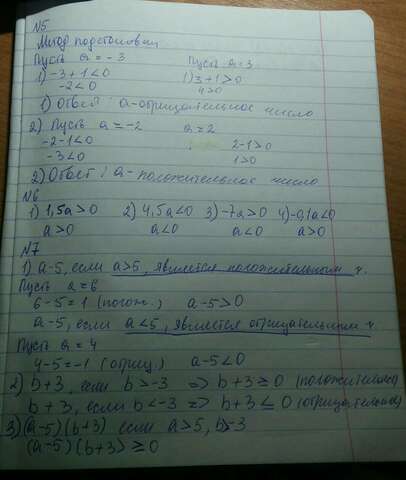 N5
Метод подстановки
Пусть a = -3      Пусть a = 3
1) -3+1<0      1) 3+1>0
-2<0      4>0
1) Ответ: a - отрицательное число
2) Пусть a = -2      a = 2
-2-1<0      2-1>0
-3<0      1>0
2) Ответ: a - положительное число
N6
1) 1,5a>0   2) 4,5a<0   3) -7a>0   4) -0,1a<0
a>0   a<0   a<0   a>0
N7
1) a-5, если a>5, является положительным ч.
Пусть a = 6
6-5=1 (полож.)      a-5>0
a-5, если a<5, является отрицательным ч.
Пусть a = 4
4-5=-1 (отриц.)      a-5<0
2) b+3, если b>-3 => b+3≥0 (положительное)
b+3, если b<-3 => b+3≤0 (отрицательное)
3) (a-5)(b+3) если a>5, b>-3
(a-5)(b+3)≥0